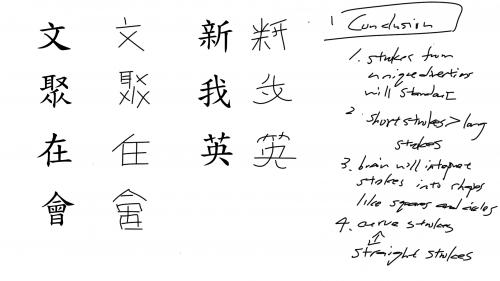 文 文 新
聚 我
在 英
會
1 Conclusion
1. strokes from
unique directions
will stand out
2 short strokes > long
strokes
3. brain will interpret
strokes into shapes
like squares and circles
4. curve strokes
straight strokes